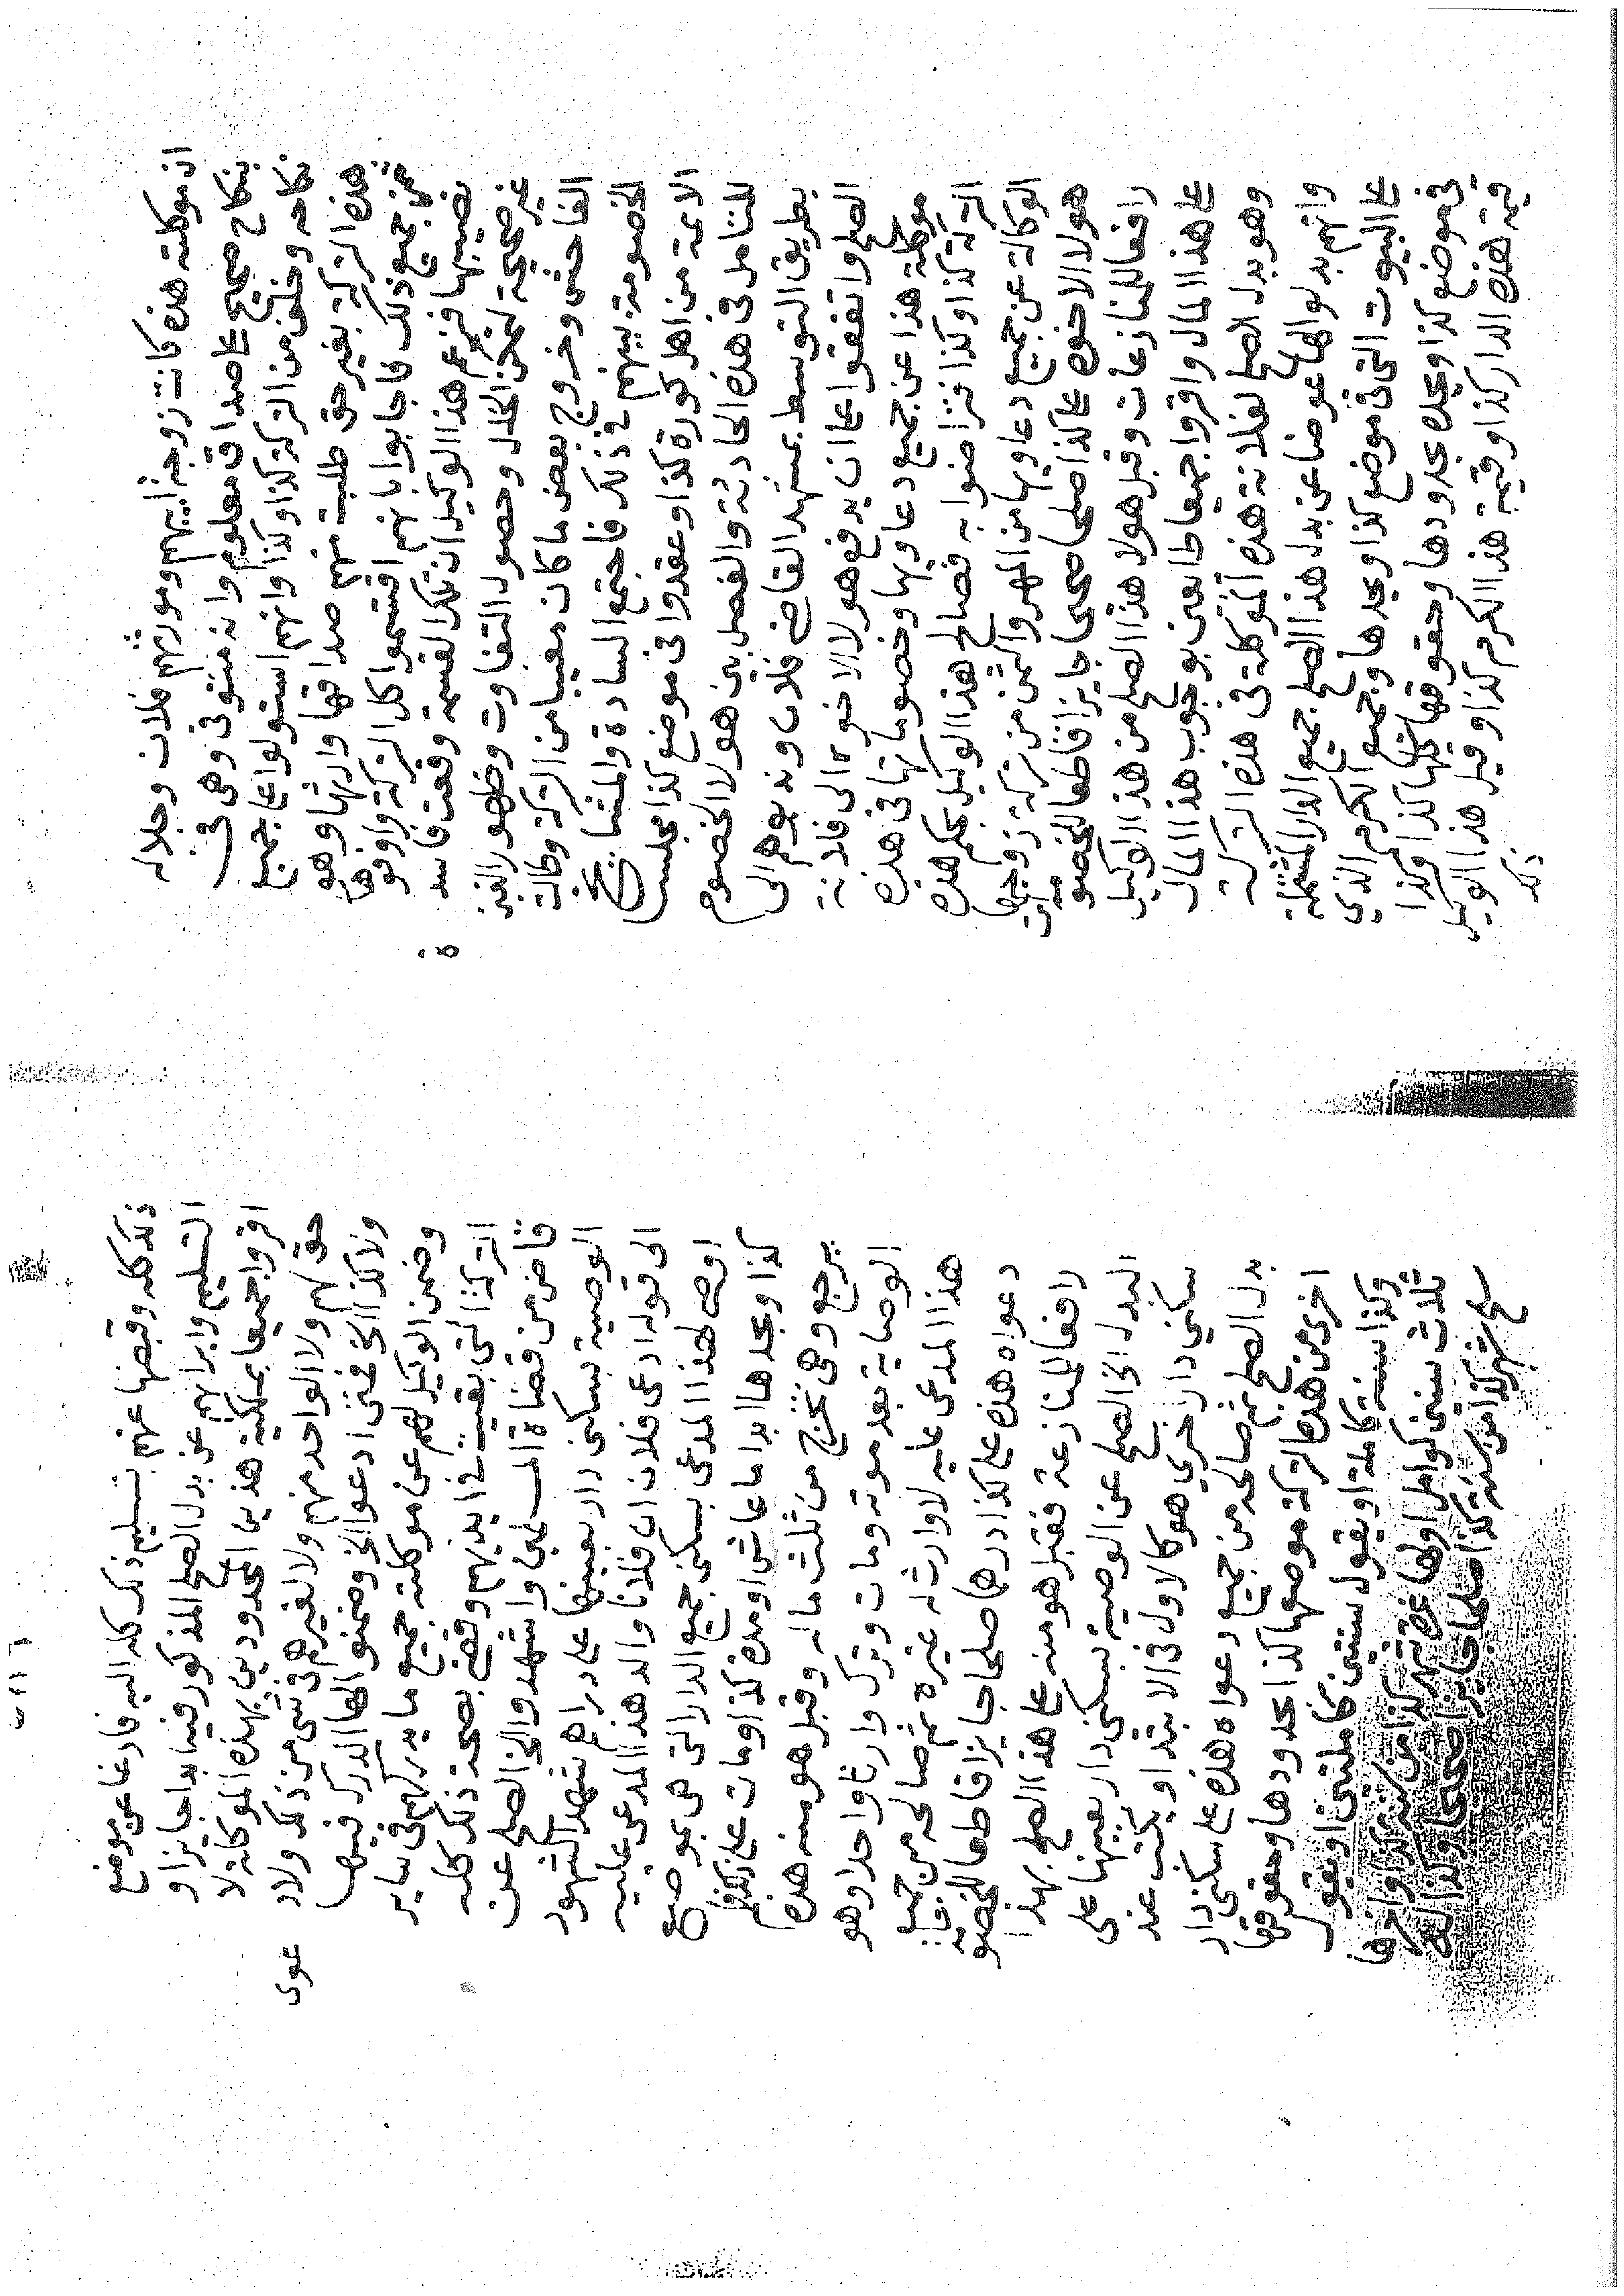 ان موكلته هذه كانت زوجة ابيهم ومورثهم فلان وحلاله
بنكاح صحيح على صداق معلوم وانه متوفى وهى فى
نكاحه وخلف من التركة كذا وكذا وانهم استولوا على جميع
هذه التركة بغير حق طلبت منهم صداقها وارثها وهو
ثمن جميع ذلك فاجابوا بانهم اقتسموا كل التركة واوفوها
نصيبها فزعم هذا الوكيل ان تلك القسمة وقعت فاسدة
غير صحيحة لتمكن الخلل وحصول التفاوت وظهور الغبن
الفاحش وخروج بعض ما كان معيبا من التركة وطالت
الخصومة بينهم فى ذلك فاجتمع السادة والمشايخ
الائمة من اهل كورة كذا وعقدوا فى موضع كذا مجلس
للتامل فى هذه الحادثة والفصل بين هولا الخصوم
بطريق التوسط بمشهد القاضى فلان وندبوهم الى
الصلح واتفقوا على ان يدفع هولا الاخوة الى فلانة
موكلة هذا عن جميع دعاويها وخصوماتها فى هذه
التركة كذا وكذا فتراضوا به فصالح هذا الوكيل بحكم هذه
الوكالة عن جميع دعاويها من المهر والثمن من تركة زوجها
هولا الاخوة على كذا صلحا صحيحا جايزا قاطعا للخصومات
رافعا للمنازعات وقبل هولا هذا الصلح من هذا الوكيل
على هذا المال واقروا جميعا طايعين بوجوب هذا المال
وهو بدل الصلح لفلانة هذه الموكلة فى هذه التركة
وانهم بدلوا لها عوضا عن بدل هذا الصلح جميع الدار المشتملة
على البيوت التى فى موضع كذا ويحدها وجميع الكرم الذي
فى موضع كذا ويحده بحدودها وحقوقها كلها كذا وكذا
قيمة هذه الدار كذا وقيمة هذا الكرم كذا وقبل هذا الوكيل
ذلك
ذلك كله وقبضها عنهم بتسليم ذلك كله اليه فارغا عن موضع
التسليم وابراهم عن بدل الصلح المذكور فيه ابدا جايزا و
اقروا جميعا بملكية هذين المحدودين بهذه الموكلة لا
حق لهم ولا لواحد منهم ولا لغيرهم فى شى من ذلك ولا دعوى
ولا كذا الخ فمتى ادعوا الخ وضمنوا لها الدرك فيها
وضمن الوكيل لهم عن موكلته جميع ما يدركهم فى ساير
التركة التى بقيت فى ايديهم وقضى بصحة ذلك كله
قاض من قضاة المسلمين واشهدوا الخ الصلح عن
الوصية بسكنى دار بعينها على دراهم شهد الشهود
الى قوله ادعى فلان ان فلانا والد هذا المدعى عليه
اوصى لهذا المدعى بسكنى جميع الدار التى هى بموضع
كذا ويحدها ابدا ما عاش او مدة كذا ومات على ذلك ولم
يرجع وهى تخرج من ثلث ماله وقبل هو منه هذه
الوصاية بعد موته ومات وترك وارثا واحدا وهو
هذا المدعى عليه لا وارث له غيره ثم صالحه من جميع
دعواه هذه على كذا درهما صلحا جايزا قاطعا للخصومة
رافعا للمنازعة فقبل هو منه على هذا الصلح بهذا
البدل الخ الصلح عن الوصية بسكنى دار بعينها على
سكنى دار اخرى هو كالاول فى الابتدا ويكتب عند
بدل الصلح ثم صالحه من جميع دعواه هذه على سكنى دار
اخرى من هذه التركة موضعها كذا بحدودها وحقوقها
وكذا سنة كاملة او يقول سنتين كاملتين او يقول
ثلاث سنين كوامل اولها غرة شهر كذا من سنة كذا واخرها
سلخ شهر كذا من سنة كذا صلحا جايزا صحيحا وكذا الى